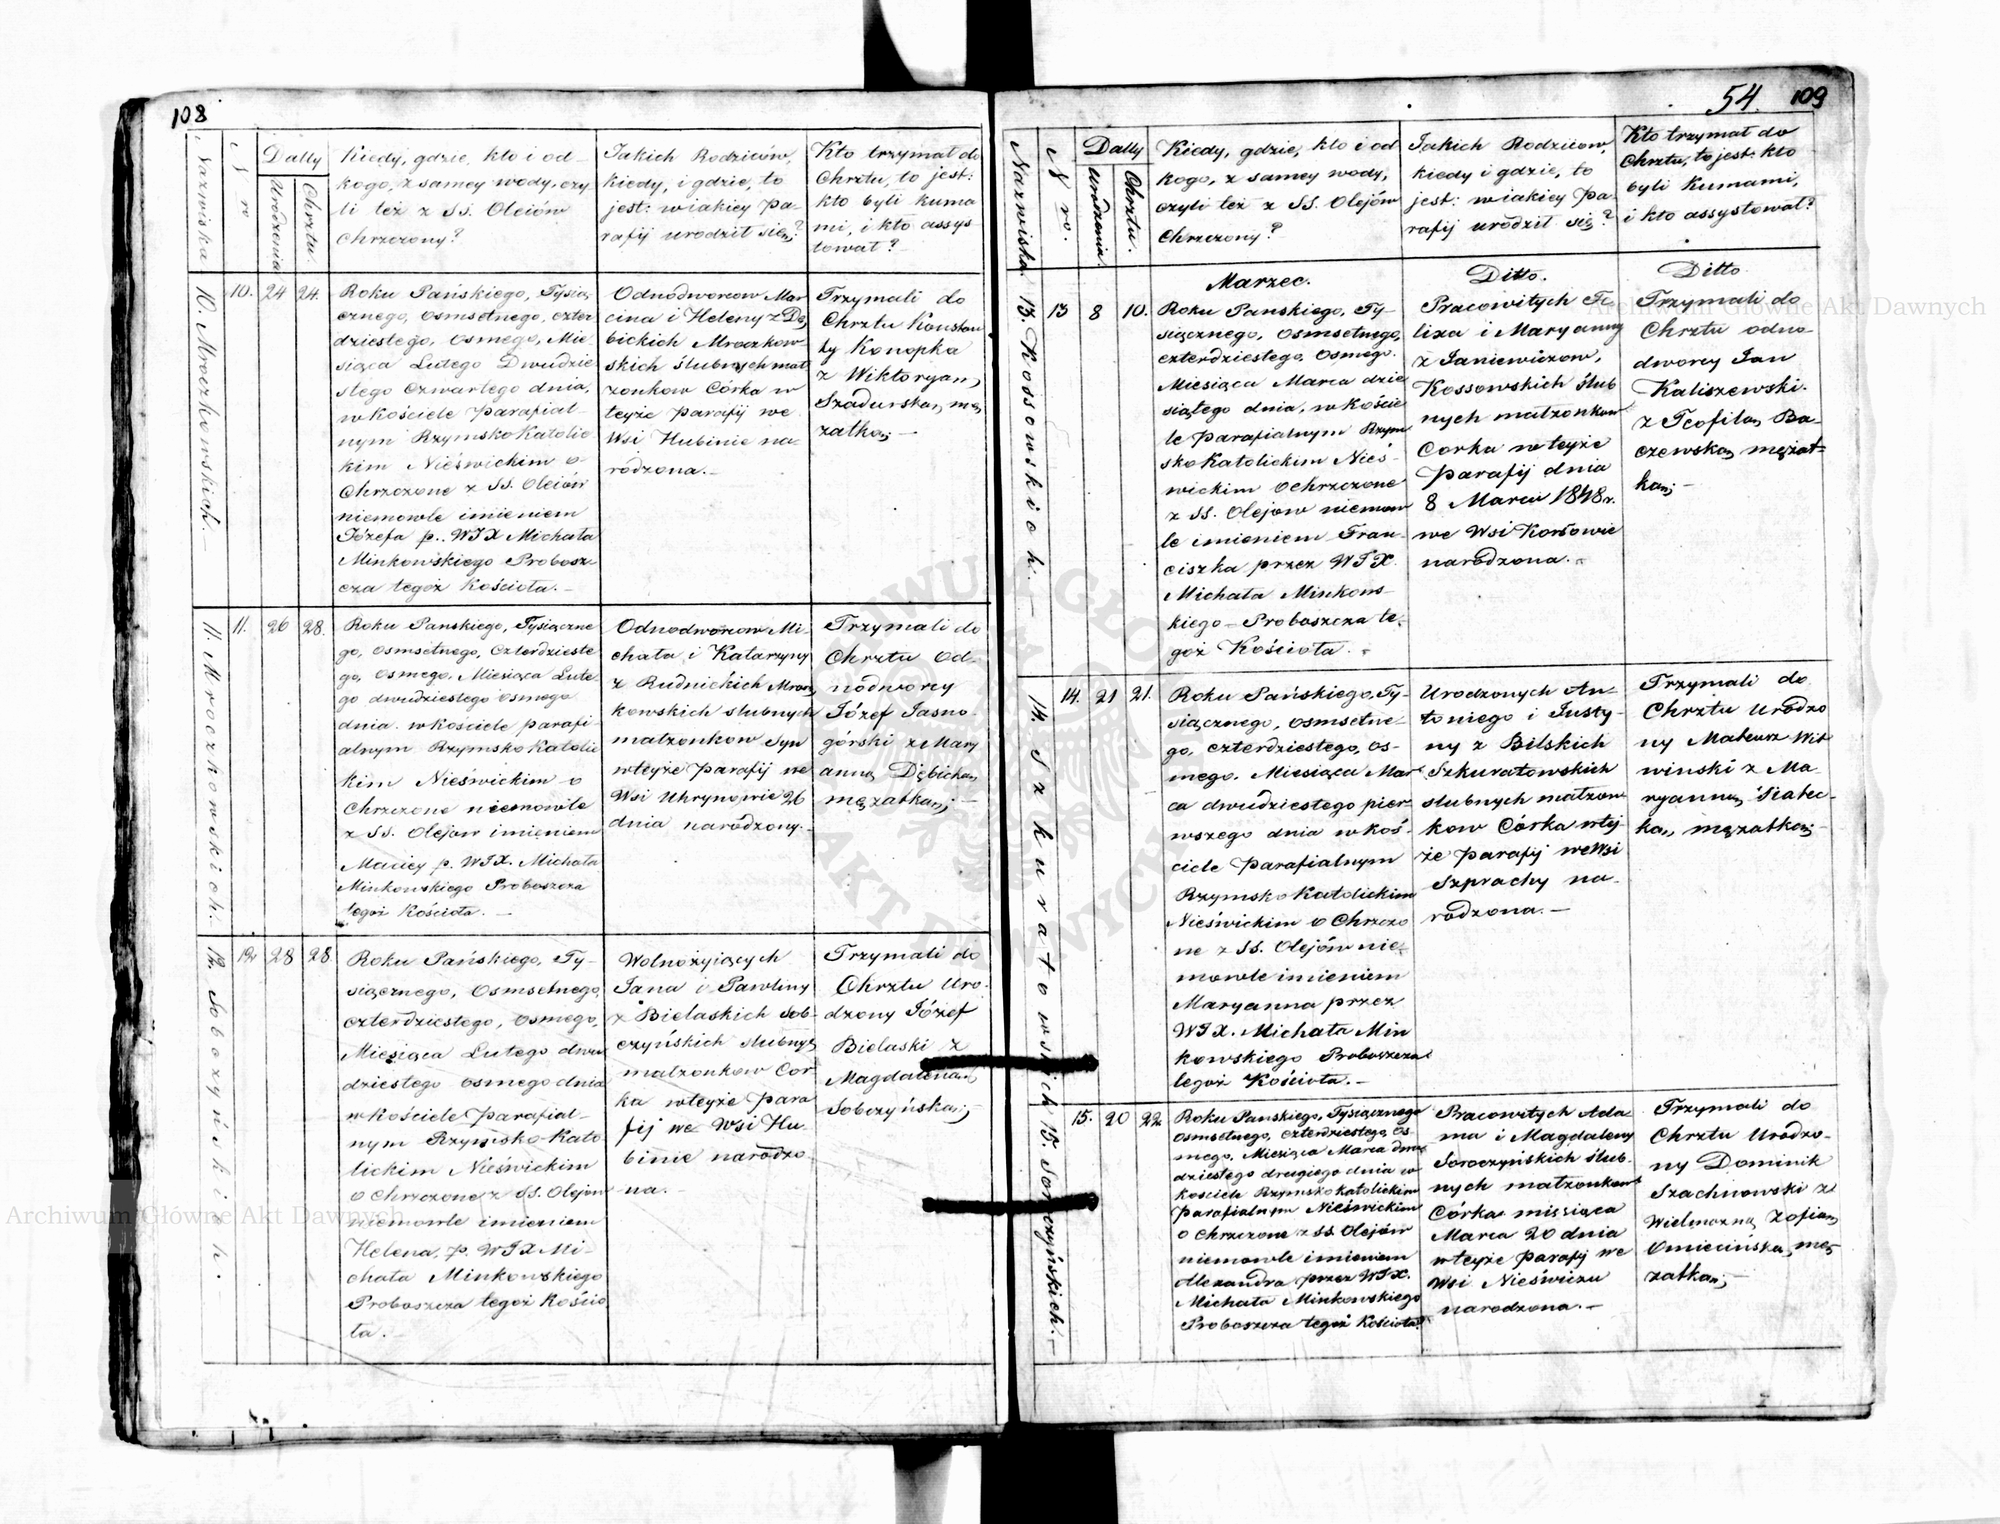 108
Nazwiska
Nro
Datty
Urodzenia
Chrztu.
Kiedy, gdzie, kto i od-
kogo, z samey wody, czy
li też z SS. Oleiów
Chrzczony?
Jakich Rodziców,
kiedy, i gdzie, to
jest: w iakiey pa-
rafij urodził się?
Kto trzymał do
Chrztu, to jest:
kto byli kuma
mi, i kto assys
tował?
10. Mroczkowskich.
10.
24
24.
Roku Pańskiego, Tysią,
cznego, osmsetnego, czter
dziestego, osmego, Mie
siąca Lutego Dwudzie
stego czwartego dnia,
w kościele parafial-
nym Rzymsko Katolic
kim Nieświckim o-
Chrzczone z SS. Oleiów
niemowle imieniem
Józefa p. WJX Michała
Minkowskiego Probosz-
cza tegoż Kościoła.-
Odnodworcow Mar
cina i Heleny z Dę
bickich Mroczkow-
skich ślubnych mał
żonkow Córka w
teyże parafij we
Wsi Hubinie na-
rodzona.-
Trzymali do
Chrztu Konstan
ty Konopka
z Wiktoryą
Szadurską, mę
żatką; -
11. Mroczkowskich.
11.
26
28.
Roku Panskiego, Tysiączne
go, osmsetnego, czterdzieste
go, osmego, Miesiąca Lute-
go dwudziestego osmego
dnia w kościele parafi-
alnym Rzymsko Katolic
kim Nieświckim o
Chrzczone niemowle
z SS. Olejow imieniem
Maciey p. WJX. Michała
Minkowskiego Proboszcza
tegoż Kościoła. -
Odnodworcow Mi-
chała i Katarzyny
z Rudnickich Mrocz
kowskich slubnych
małżonkow Syn
wteyże parafij we
Wsi Uhrynowie 26
dnia narodzony.-
Trzymali do
Chrztu Od-
nodworcy
Józef Jasno-
górski z Mary
anną Dębicką
mężatką; -
12. Sobczyńskich.
12
28
28
Roku Pańskiego, Ty-
siącznego, Osmsetnego,
czterdziestego, osmego,
Miesiąca Lutego dwu
dziestego osmego dnia
w kościele parafial-
nym Rzymsko-Kato
lickim Nieświckim
o Chrzczone z SS. Olejow
niemowle imieniem
Helena, p. WJX Mi-
chała Minkowskiego
Proboszcza tegoż Kościo
ła.-
Wolnożyiących
Jana i Pawliny
z Bielaskich Sob-
czyńskich slubnych
małżonkow Cor-
ka wteyże para
fij we Wsi Hu-
binie narodzo
na.-
Trzymali do
Chrztu Uro-
dzony Józef
Bielaski z
Magdaleną
Sobczyńską; -
54.
109
Nazwiska
Nro.
Datty
Urodzenia.
Chrztu.
Kiedy, gdzie, kto i od
kogo, z samey wody,
czyli też z SS. Olejów
Chrzczony?
Jakich Rodzicow,
kiedy i gdzie, to
jest: w iakiey Pa-
rafij urodził się?
Kto trzymał do
Chrztu, to jest: kto
byli Kumami,
i kto assystował?
13. Kossowskich.-
13
8
10.
Marzec.
Roku Panskiego, Ty-
siącznego, osmsetnego,
czterdziestego, osmego.
Miesiąca Marca dzie
siątego dnia, w koście
le Parafialnym Rzym
sko Katolickim Nieś-
wickim ochrzczone
z SS. Olejow niemow
le imieniem Fran-
ciszka przez WJX.
Michała Minkows-
kiego - Proboszcza te-
goż Kościoła.-
Ditto.
Pracowitych Fe
lixa i Maryanny
z Janiewiczow,
Kossowskich ślub
nych małżonkow
Corka w teyże
Parafij dnia
8 Marca 1848 r.
we Wsi Korsowie
narodzona.-
Ditto.
Trzymali do
Chrztu odno-
dworcy Jan
Kaliszewski.
z Teofilą Ba-
czewską mężat-
ką; -
14. Szkuratowskich
14.
21
21.
Roku Pańskiego, Ty-
siącznego, osmsetne-
go, czterdziestego, os-
mego. Miesiąca Mar
ca dwudziestego pier
wszego dnia w koś-
ciele Parafialnym
Rzymsko Katolickim
Nieświckim o Chrzczo
ne z SS. Olejów nie-
mowle imieniem
Maryanna przez
WJX. Michała Min
kowskiego Proboszcza
tegoż Kościoła.-
Urodzonych An-
toniego i Justy-
ny z Bilskich
Szkuratowskich
slubnych małżon
kow Córka wtey
że Parafij we Wsi
Szprachy na-
rodzona.-
Trzymali do
Chrztu Urodzo
ny Mateusz Wit
winski z Ma-
ryanną
mężatką; -
15. Soroczyńskich.-
15.
20
22
Roku Panskiego, Tysiącznego
osmsetnego, czterdziestego, os-
mego, Miesiąca Marca dwu
dziestego drugiego dnia w
kosciele Rzymsko Katolickim
Parafialnym Nieświckim
o Chrzczone z SS. Olejów
niemowle imieniem
Alexandra przez WJX.
Michała Minkowskiego
Proboszcza tegoż Kościoła.
Pracowitych Ada
ma i Magdaleny
Soroczyńskich ślub-
nych małżonkow
Córka miesiąca
Marca 20 dnia
wteyże Parafij we
Wsi Nieświczu
narodzona.-
Trzymali do
Chrztu Urodzo-
ny Dominik
Szachnowski z
Wielmożną Zofią
Omiecińską, mę-
żatką; -
Archiwum Główne Akt Dawnych
Archiwum Główne Akt Dawnych